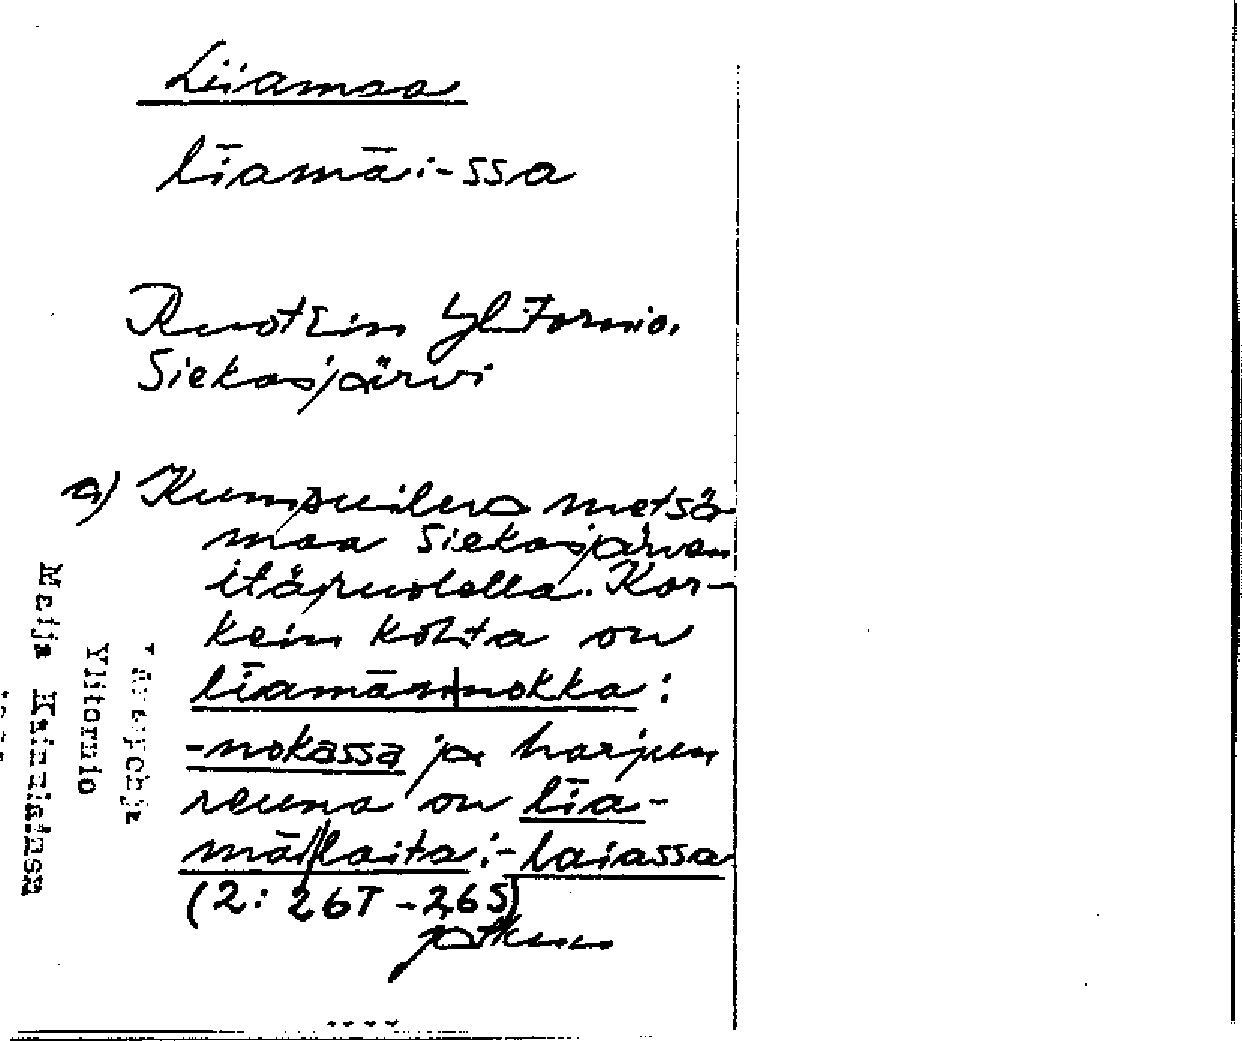 Liiamaa
līamā:-ssa
Ruotsin Ylitornio.
Siekasjärvi
a) Kumpuileva metsä-
maa Siekasjärven
itäpuolella. Kor-
kein kohta on
līamān|nokka:
-nokassa ja harjun
reuna on līa-
mā//laita:-laiassa
(2: 267-265)
jatkuu
Ylitornio
Meija Kainulainen